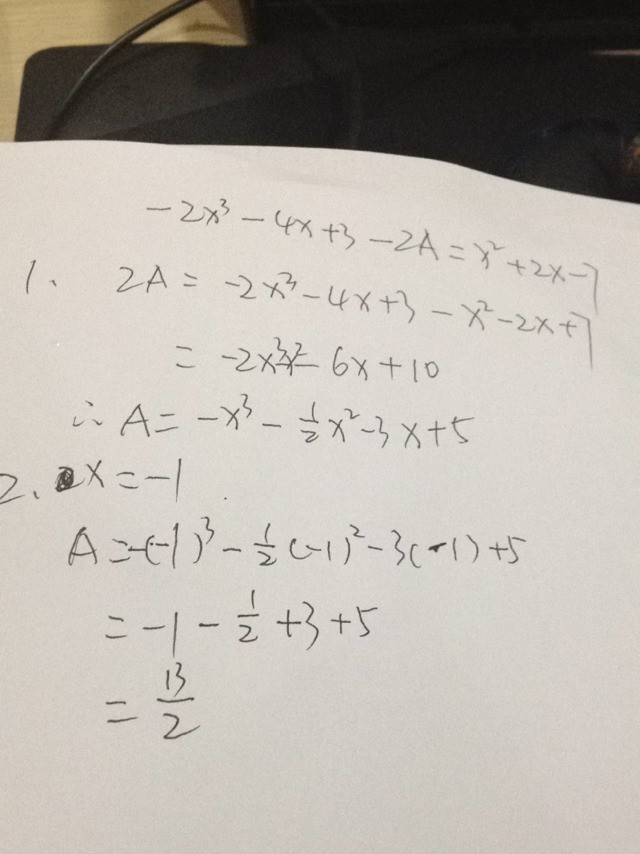 -2x³-4x+3-2A=x²+2x-7
1、 2A=-2x³-4x+3-x²-2x+7
=-2x³-x²-6x+10
∴A=-x³-½x²-3x+5
2、x=-1
A=-(-1)³-½(-1)²-3(-1)+5
=-1-½+3+5
=13/2